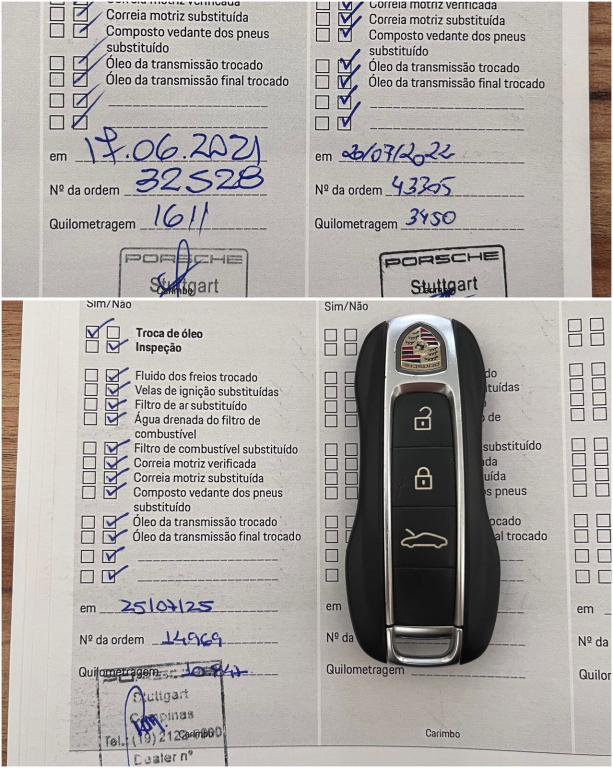 Correia motriz verificada
Correia motriz substituída
Composto vedante dos pneus
substituído
Óleo da transmissão trocado
Óleo da transmissão final trocado
em 17.06.2021
Nº da ordem 32528
Quilometragem 1611
PORSCHE
Stuttgart
Carimbo
Correia motriz verificada
Correia motriz substituída
Composto vedante dos pneus
substituído
Óleo da transmissão trocado
Óleo da transmissão final trocado
em 20/07/2022
Nº da ordem 43305
Quilometragem 3450
PORSCHE
Stuttgart
Sim/Não
Troca de óleo
Inspeção
Fluido dos freios trocado
Velas de ignição substituídas
Filtro de ar substituído
Água drenada do filtro de
combustível
Filtro de combustível substituído
Correia motriz verificada
Correia motriz substituída
Composto vedante dos pneus
substituído
Óleo da transmissão trocado
Óleo da transmissão final trocado
em 25/07/25
Nº da ordem 14969
Quilometragem
Stuttgart
Campinas
Tel.: (19)
Carimbo
Dealer nº
Sim/Não
do
tuídas
o
de
substituído
ada
uída
s pneus
ocado
al trocado
em
Nº da
Quilometragem
Carimbo
em
Nº da
Quilor